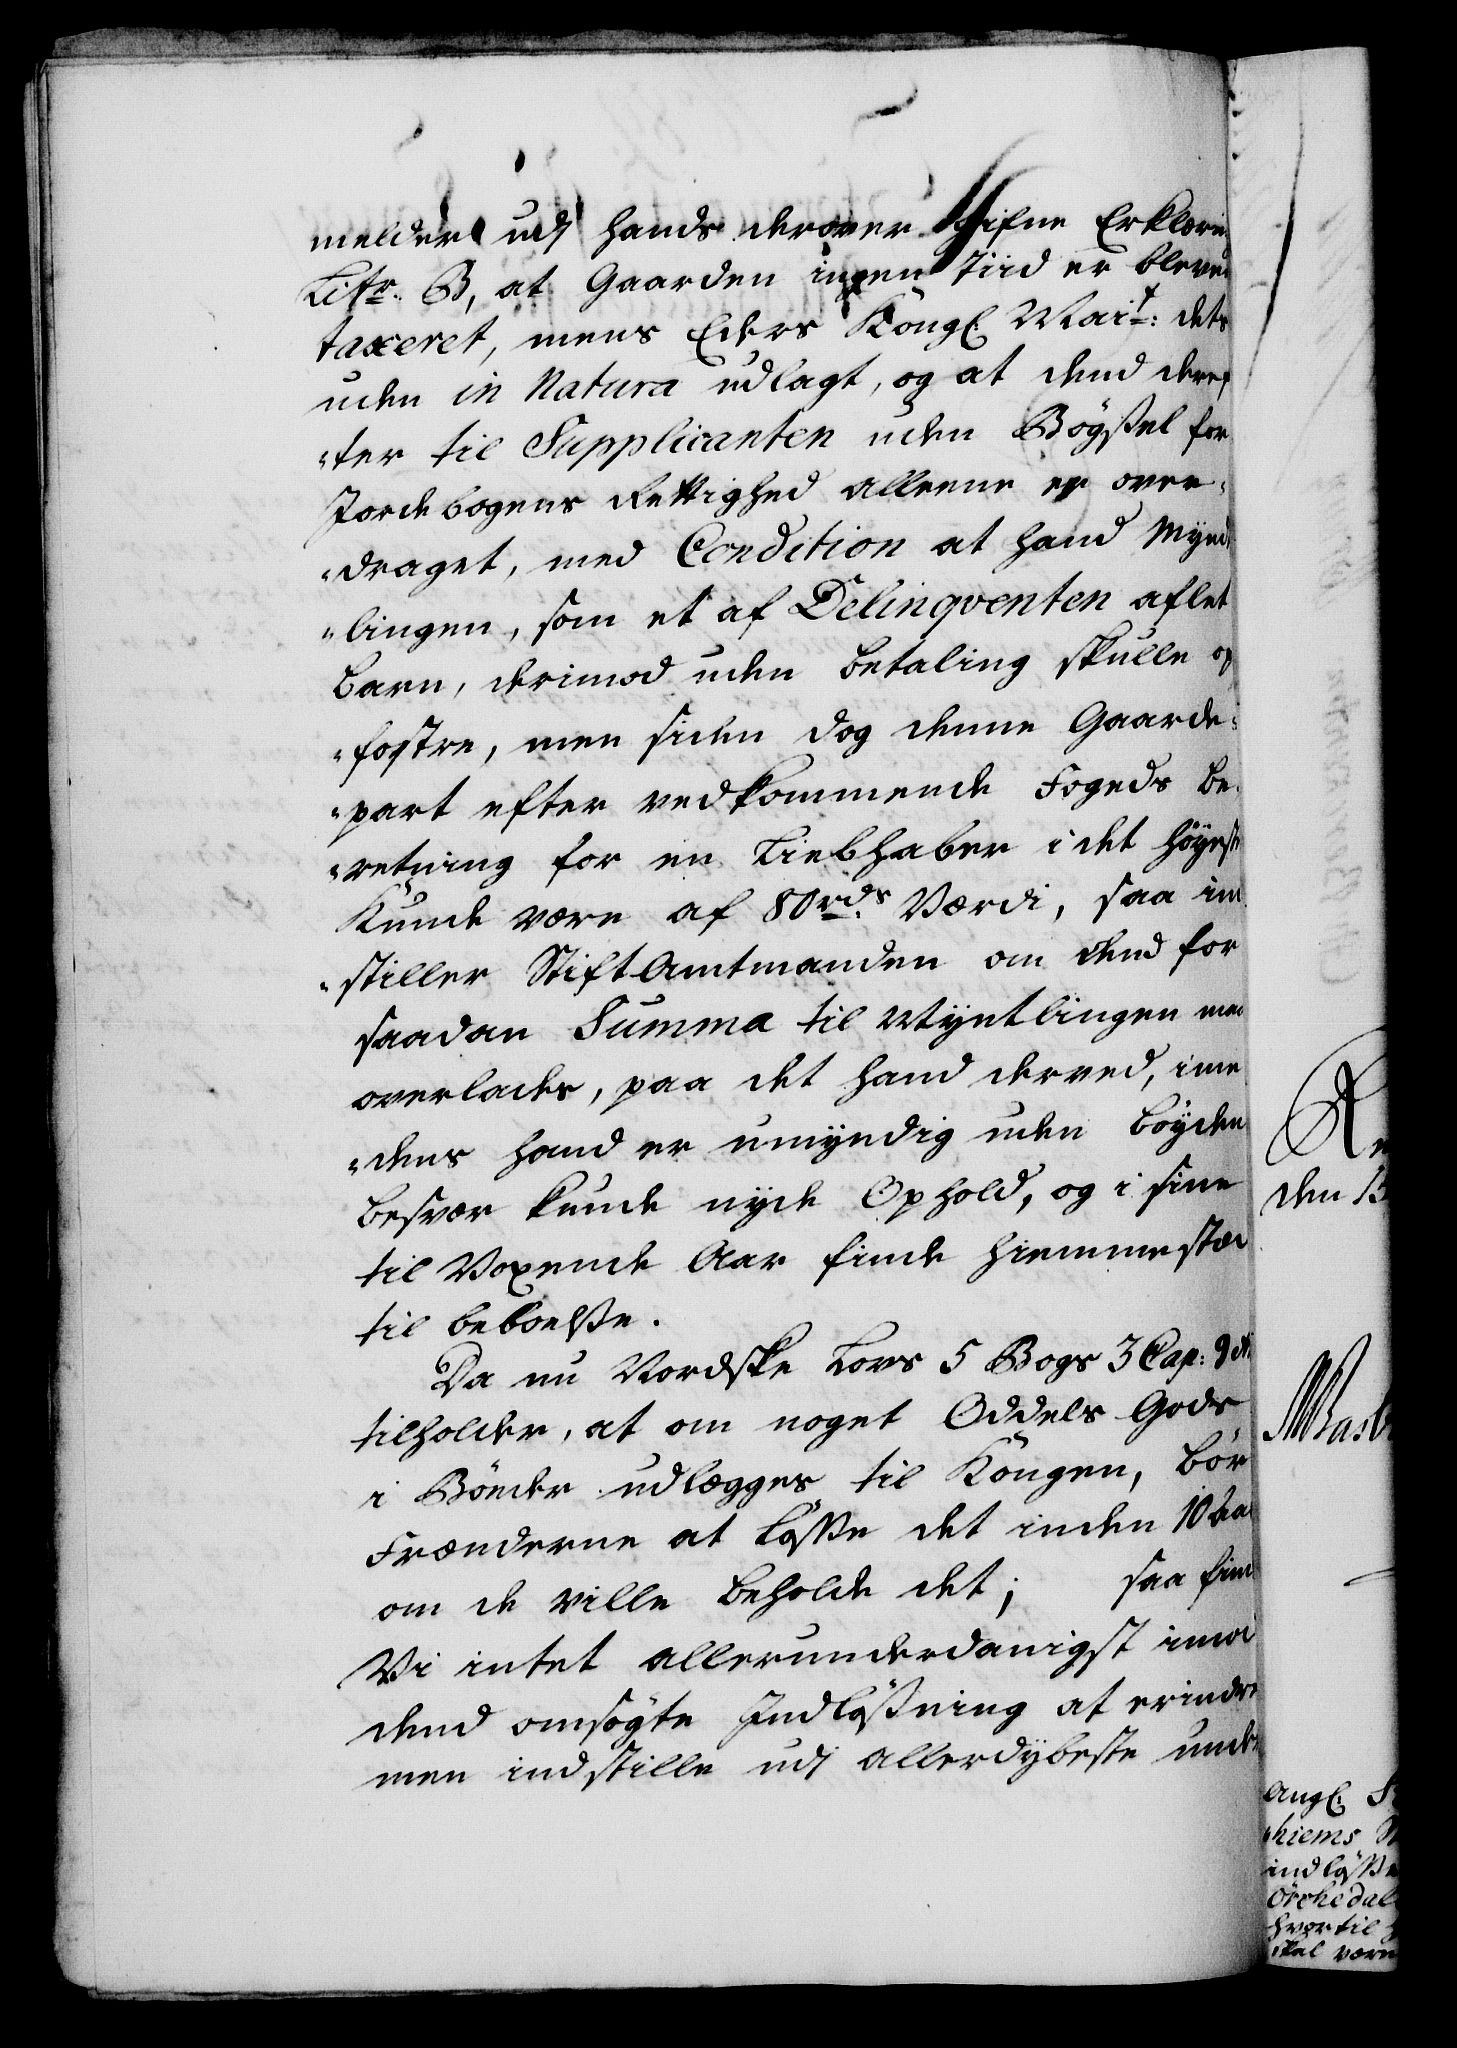 melder udj hands derover gifne Erklæri
Litr. B, at Gaarden ingen Tiid er bleve
taxeret, mens Eders Kongl. Mait: dets
uden in Natura udlagt, og at dend deref
"ter til Supplicanten uden Böyßel for
Jordebogens Rettighed alleene er over"
"draget, med Condition at hand Mynd
"lingen, som et af Delinqventen aflet
barn, derimod uden betaling skulle op
"fostre, men siden dog denne Gaarde"
"part efter vedkommende Fogeds be"
"retning for en Liebhaber i det höyeste
Kunde være af 80 rd.s Værdi, saa in
"stiller Stiftamtmanden om dend for
saadan Summa til Myntlingen maa
overlades, paa det hand derved, ime
"dens hand er umyndig uden böyden
besvær kunde nyde Ophold, og i sine
til Voxende Aar finde Hiemmestæd
til beboelße.
Da nu Nordske Lovs 5 Bogs 3 Cap: 9 Art
tilholder, at om noget Oddels Gods
i Bönder udlægges til Kongen, bör
Frænderne at löße det inden 10 Aar
om de ville beholde det; saa find
Vi intet allerunderdanigst imod
dend omsögte Indlößning at erindre
men indstille udj allerdybeste under
den 13
Angl.
"hiems
indlöße
Orchedal
hvortil
skal være